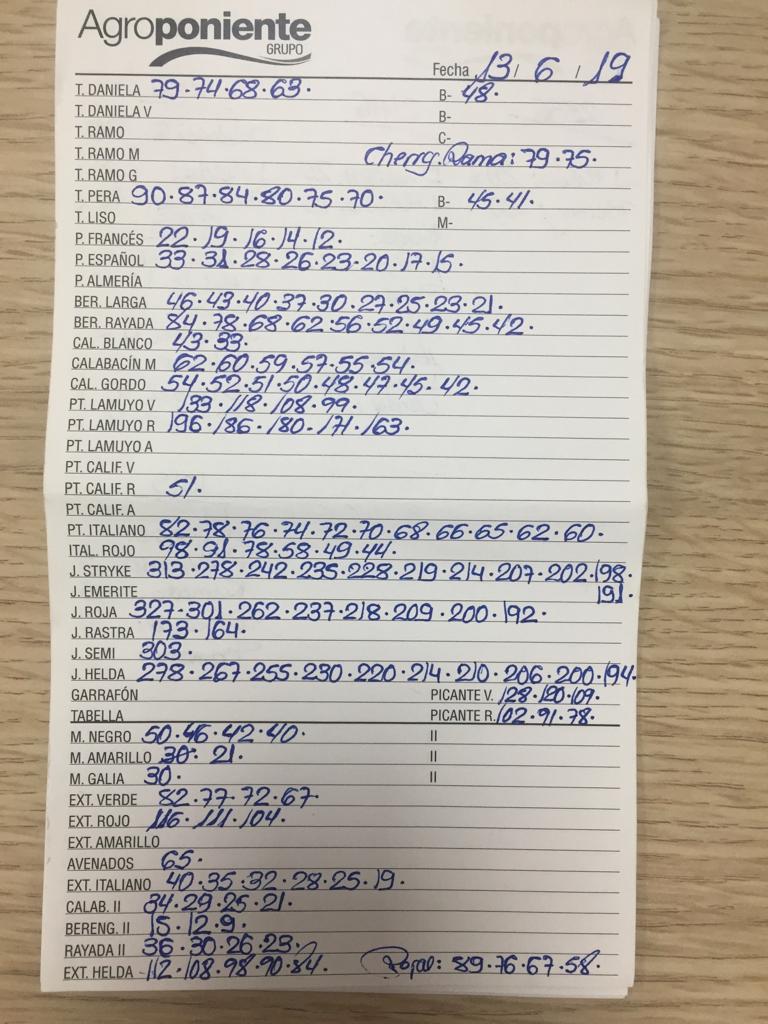 Agroponiente
GRUPO
Fecha 13 / 6 / 19
T. DANELA 79·74·68·63· B- 48·
T. DANIELA V B-
T. RAMO C-
T. RAMO M Cherry. Rama: 79·75·
T. RAMO G
T. PERA 90·87·84·80·75·70· B- 45·41·
T. LISO M-
P. FRANCÉS 22·19·16·14·12·
P. ESPAÑOL 33·31·28·26·23·20·17·15·
P. ALMERÍA
BER. LARGA 46·43·40·37·30·27·25·23·21·
BER. RAYADA 84·78·68·62·56·52·49·45·42·
CAL. BLANCO 43·33·
CALABACÍN M 62·60·59·57·55·54·
CAL. GORDO 54·52·51·50·48·47·45·42·
PT. LAMUYO V 133·118·108·99·
PT. LAMUYO R 196·186·180·171·163·
PT. LAMUYO A
PT. CALIF. V
PT. CALIF. R 51·
PT. CALIF. A
PT. ITALIANO 82·78·76·74·72·70·68·66·65·62·60·
ITAL. ROJO 98·91·78·58·49·44·
J. STRYKE 313·278·242·235·228·219·214·207·202·198·
J. EMERITE 191·
J. ROJA 327·301·262·237·218·209·200·192·
J. RASTRA 173·164·
J. SEMI 303·
J. HELDA 278·267·255·230·220·214·210·206·200·194·
GARRAFÓN PICANTE V. 128·120·109·
TABELLA PICANTE R. 102·91·78·
M. NEGRO 50·46·42·40· II
M. AMARILLO 30· 21· II
M. GALIA 30· II
EXT. VERDE 82·77·72·67·
EXT. ROJO 116·111·104·
EXT. AMARILLO
AVENADOS 65·
EXT. ITALIANO 40·35·32·28·25·19·
CALAB. II 34·29·25·21·
BERENG. II 15·12·9·
RAYADA II 36·30·26·23·
EXT. HELDA 112·108·98·90·84· Rojal: 89·76·67·58·